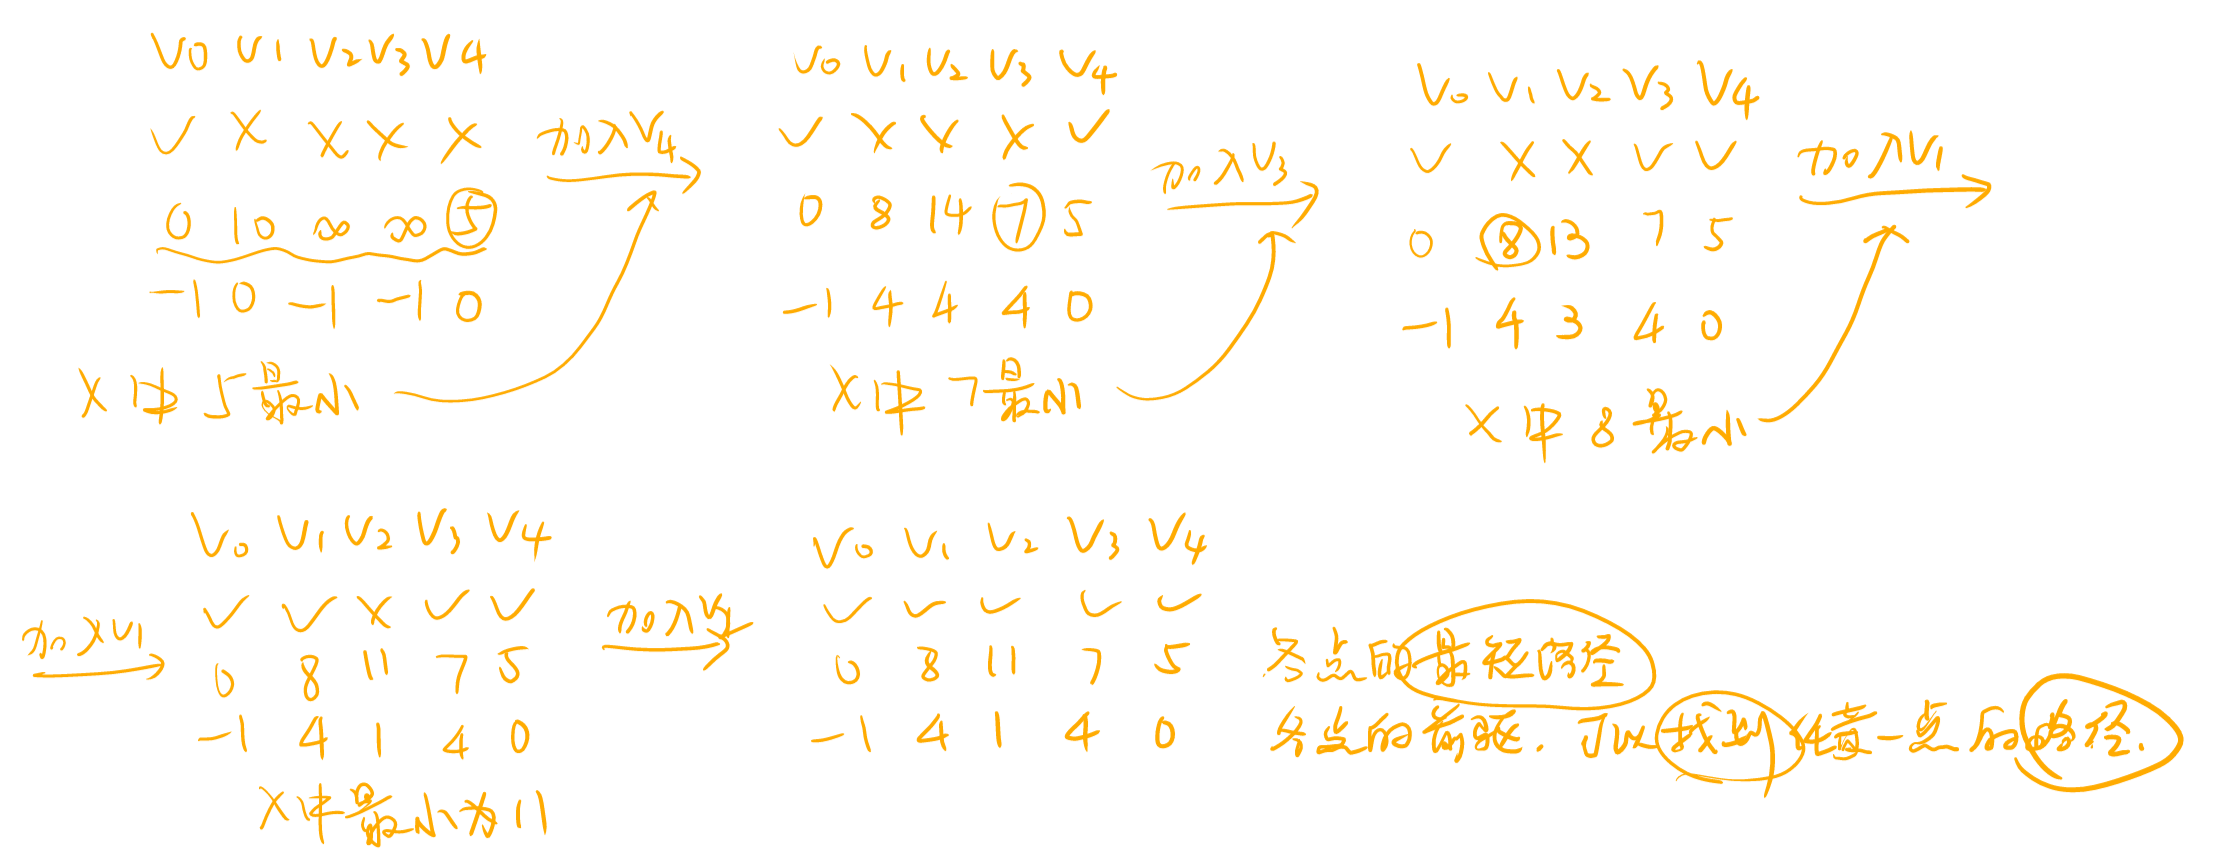 V0 V1 V2 V3 V4
✓ × × × ×
0 10 ∞ ∞ 5
-1 0 -1 -1 0
×中5最小
加入V4
V0 V1 V2 V3 V4
✓ × × × ✓
0 8 14 7 5
-1 4 4 4 0
×中7最小
加入V3
V0 V1 V2 V3 V4
✓ × × ✓ ✓
0 8 13 7 5
-1 4 3 4 0
×中8最小
加入V1
加入V1
V0 V1 V2 V3 V4
✓ ✓ × ✓ ✓
0 8 11 7 5
-1 4 1 4 0
×中最小为11
加入
V0 V1 V2 V3 V4
✓ ✓ ✓ ✓ ✓
0 8 11 7 5
-1 4 1 4 0
各点的最短路径
各点的前驱.可以找到任意一点的路径.